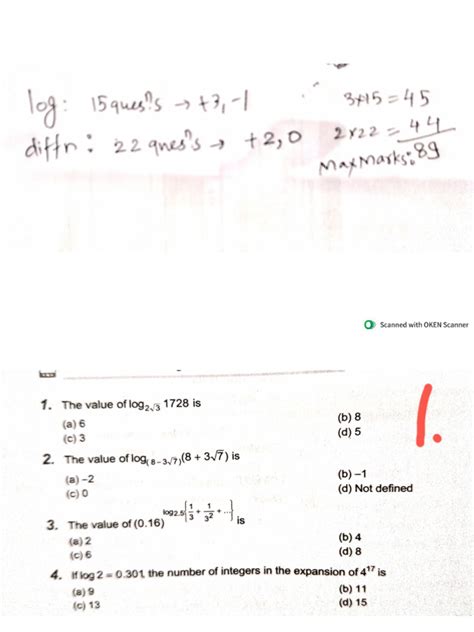 log: 15 ques?s → +3, -1
3×15 = 45
diffn: 22 ques?s → +2, 0
2×22 = 44
Max Marks: 89
Scanned with OKEN Scanner
1.
1. The value of log₂√₃ 1728 is
(a) 6
(b) 8
(c) 3
(d) 5
2. The value of log₍₈₋₃√₇₎(8 + 3√7) is
(a) –2
(b) –1
(c) 0
(d) Not defined
3. The value of (0.16)^log₂.₅{1/3 + 1/3² + ...} is
(a) 2
(b) 4
(c) 6
(d) 8
4. If log 2 = 0.301, the number of integers in the expansion of 4¹⁷ is
(a) 9
(b) 11
(c) 13
(d) 15